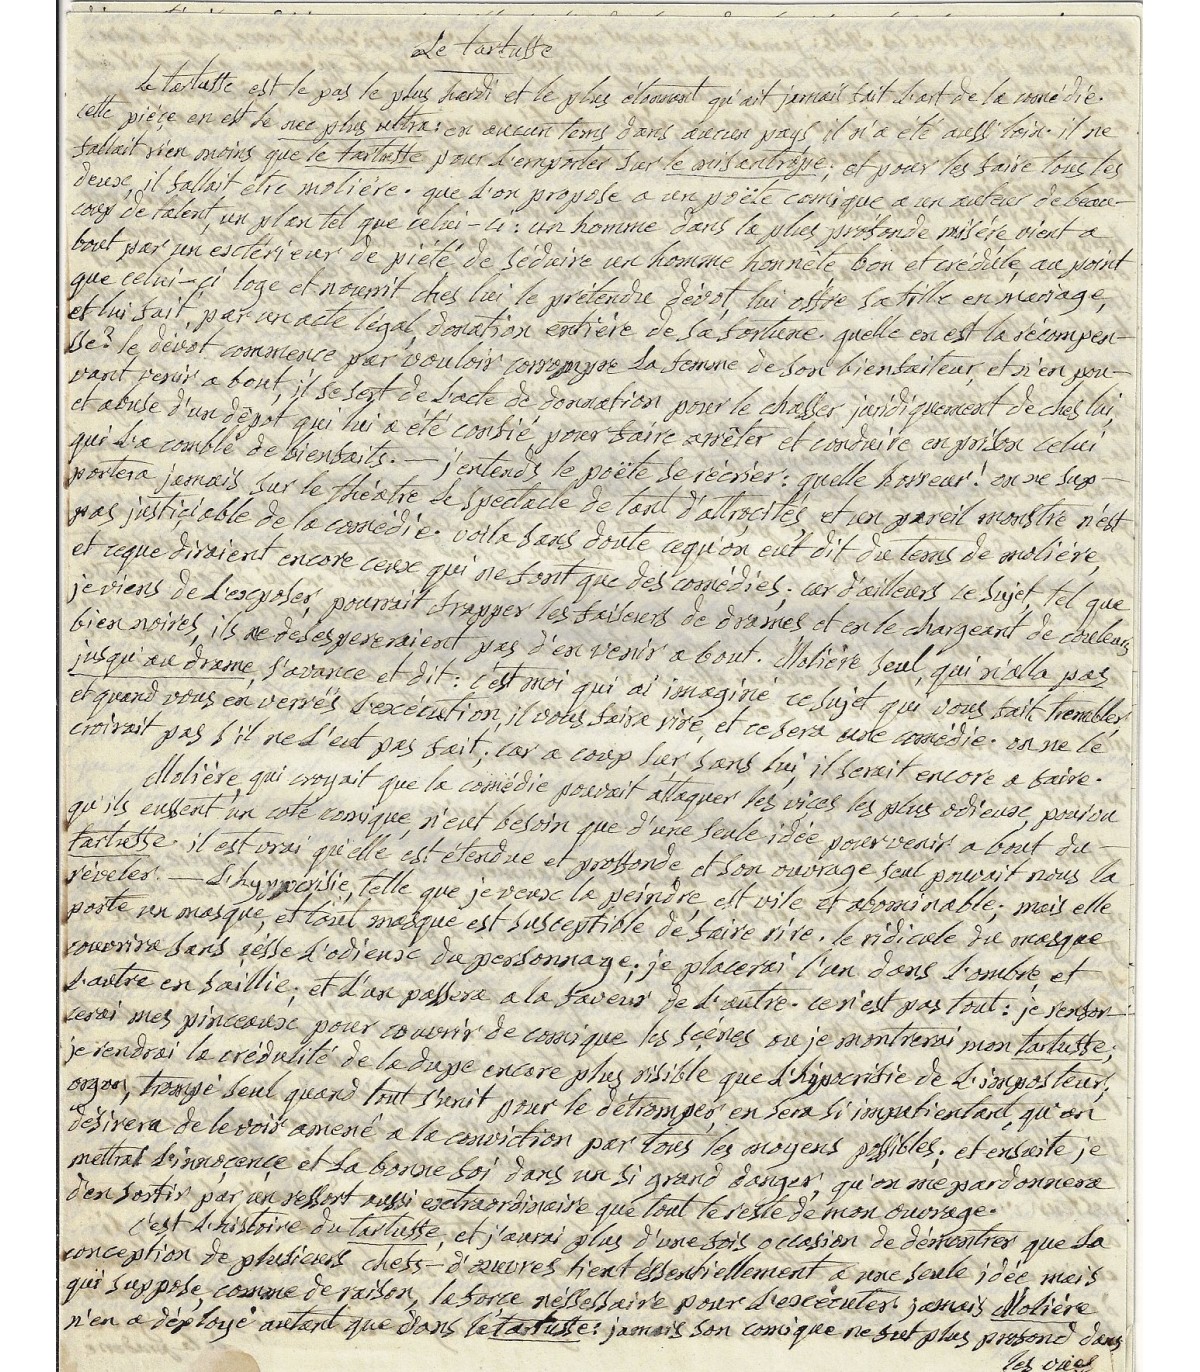 Le tartuffe
Le tartuffe est le pas le plus hardi et le plus étonnant qu'ait jamais fait l'art de la comédie.
cette pièçe en est le nec plus ultra: en aucun tems, dans aucun pays il n'a été aussi loin. il ne
fallait rien moins que le tartuffe pour l'emporter sur le misantrope; et pour les faire tous les
deux, il fallait etre moliére. que l'on propose a un poëte comique a un auteur de beau-
coup de talent, un plan tel que celui-ci: un homme dans la plus profonde misére vient a
bout par un extérieur de piété de séduire un homme honnete bon et crédule, au point
que celui-ci loge et nourrit ches lui le prétendu dévot, lui offre sa fille en mariage,
et lui fait, par un acte légal, donation entiére de sa fortune. quelle en est la récompen-
se? le dévot commence par vouloir corrompre la femme de son bienfaiteur, et n'en pou-
vant venir a bout, il se sert de l'acte de donnation pour le chasser juridiquement de ches lui,
et abuse d'un dépot qui lui a été confié pour faire arrêter et conduire en prison celui
qui l'a comblé de bienfaits. — j'entends le poëte se récrier: quelle horreur! on ne sup-
portera jamais sur le théatre le spectacle de tant d'attrocités et un pareil monstre n'est
pas justiçiable de la comédie. voila sans doute cequ'on eut dit du tems de moliére,
et ceque diraient encore ceux qui ne font que des comédies; car d'ailleurs ce sujet, tel que
je viens de l'exposer, pourrait frapper les faiseurs de drames et en le chargeant de couleurs
bien noires, ils ne desespereraient pas d'en venir a bout. Moliére seul, qui n'alla pas
jusqu'au drame, s'avance et dit: c'est moi qui ai imaginé ce sujet qui vous fait trembler
et quand vous en verrés l'exécution, il vous faira rire, et ce sera une comédie. on ne le
croirait pas s'il ne l'eut pas fait; car a coup sur sans lui, il serait encore a faire.
Moliére, qui croyait que la comédie pouvait attaquer les viçes les plus odieux, pourvu
qu'ils eussent un coté comique, n'eut besoin que d'une seule idée pour venir a bout du -
tartuffe. il est vrai qu'elle est étendue et proffonde, et son ouvrage seul pouvait nous la
réveler. — L'hyppcrisie, telle que je veux la peindre, est vile et abominable; mais elle
porte un masque, et tout masque est susceptible de faire rire. le ridicule du masque
couvrira sans cesse l'odieux du personnage; je placerai l'un dans l'ombre, et
l'autre en saillie; et l'un passera a la faveur de l'autre. ce n'est pas tout: je renfor-
cerai mes pinceaux pour couvrir de comique les sçenes ou je montrerai mon tartuffe;
je rendrai la crédulité de la dupe encore plus risible que l'hypocrisie de l'imposteur;
orgon, trompé seul quand tout s'unit pour le détromper, en sera si impatientant, qu'on
désirera de le voir amené a la conviction par tous les moyens possibles; et ensuite je
mettrai l'innoçençe et la bonne foi dans un si grand danger, qu'on me pardonnera
d'en sortir par un ressort aussi extraordinaire que tout le reste de mon ouvrage.
c'est l'histoire du tartuffe, et j'aurai plus d'une fois occasion de démontrer que la
conception de plusieurs chefs-d'œuvres tient éssentiellement a une seule idée mais
qui suppose, comme de raison, la force néssessaire pour l'exécuter. jamais Moliére
n'en a déployé autant que dans le tartuffe: jamais son comique ne fut plus profond dans
les vues